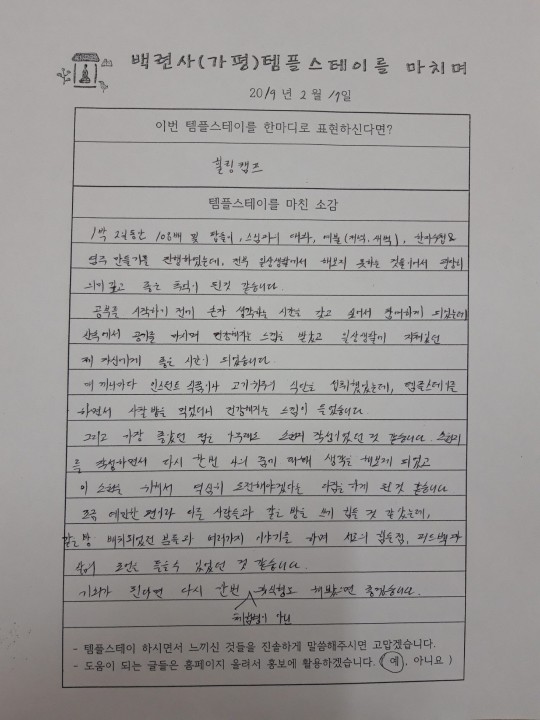 백련사(가평)템플스테이를 마치며
2019 년 2 월 19일
이번 템플스테이를 한마디로 표현하신다면?
힐링캠프
템플스테이를 마친 소감
1박 2일동안 108배 및 탑돌이, 스님과의 대화, 예불(저녁, 새벽),
염주 만들기를 진행하였는데, 일상생활에서 해보지 못하는 것들이어서
의미깊고 좋은 추억이 된것 같습니다.
공부를 시작하기 전에 혼자 생각하는 시간을 갖고 싶어서 참여하게 되었는데
산속에서 공기를 마시며 건강해지는 느낌을 받았고 일상생활에 지쳐있던
제 자신에게 좋은 시간이 되었습니다.
매 끼니마다 인스턴트 식품이나 고기위주의 식단을 섭취했었는데, 템플스테이를
하면서 사찰밥을 먹었더니 건강해지는 느낌이 들었습니다.
그리고 가장 좋았던 점은 소원지 작성이었던 것 같습니다. 소원지
를 작성하면서 다시 한번 나의 꿈에 대해 생각을 해보게 되었고
이 소원을 위해서 열심히 도전해야겠다는 다짐을 하게 된 것 같습니다.
조금 예민한 편이라 다른 사람들과 같은 방을 쓰기 힘들 것 같았는데,
같은 방 배치되었던 분들과 여러가지 이야기를 하며 서로의 힘든점, 피드백과
조언을 들을수 있었던 것 같습니다.
기회가 된다면 다시 한번 휴식형도 해봤으면 좋겠습니다.
체험형이 아닌
- 템플스테이 하시면서 느끼신 것들을 진솔하게 말씀해주시면 고맙겠습니다.
- 도움이 되는 글들은 홈페이지 올려서 홍보에 활용하겠습니다. ( 예, 아니요 )